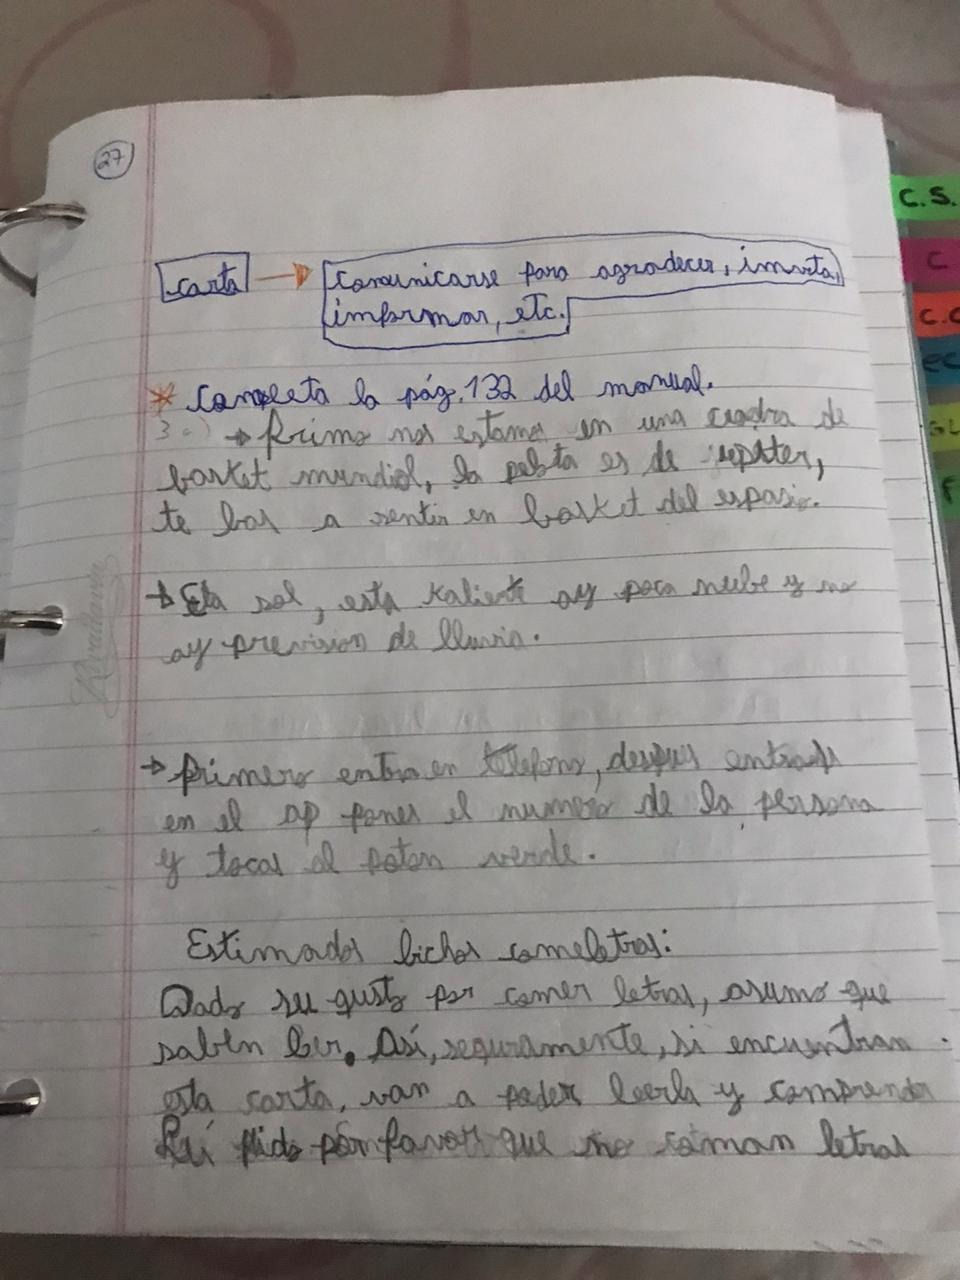 27
C.S.
C
C.C
carta → comunicarse para agradecer, invita,
informar, etc.
* Completa la pág. 132 del manual.
3 → Primo nos estamos en una cuadra de
basket mundial, la pelota es de
te bas a sentir en basket del espasio.
→ Esta sol, esta kaliente ay poca nube y no
ay prevision de lluvia.
Rivadavia
→ Primero entra en telefono, despues
en el ap pones el numero de la persona
y tocas al poton verde.
Estimados bichos comeletras:
Dado su gusto por comer letras, asumo que
saben leer. Así, seguramente, si encuentran
esta carta, van a poder leerla y comprender
pido por favor que no coman letras